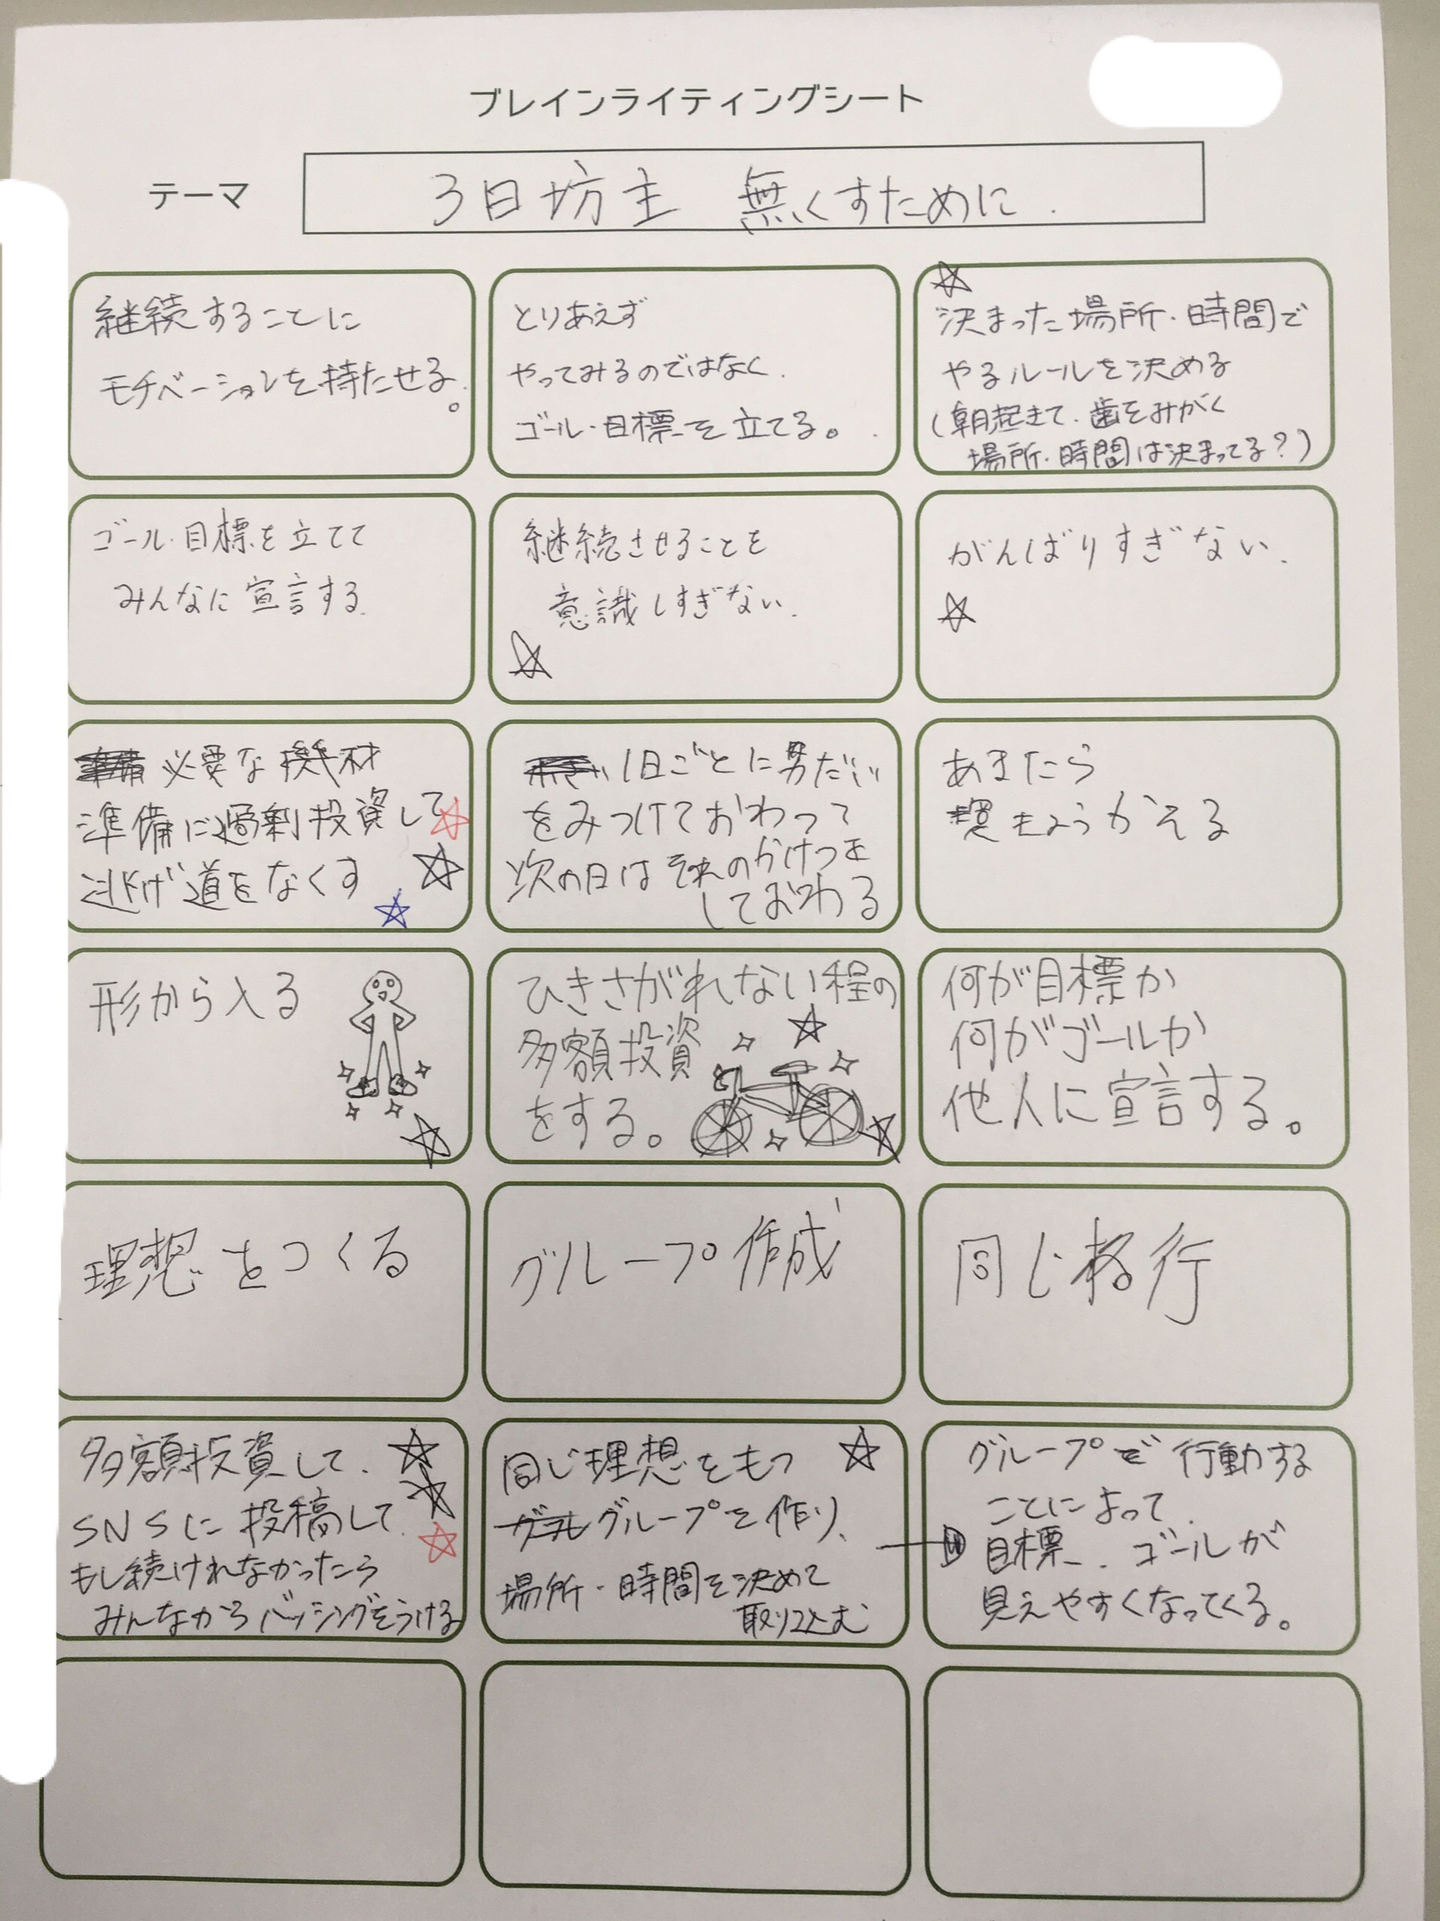 ブレインライティングシート
テーマ
3日坊主 無くすために.
継続することに
モチベーションを持たせる。
とりあえず
やってみるのではなく
ゴール・目標を立てる。
決まった場所・時間で
やるルールを決める
(朝起きて、歯をみがく
場所・時間は決まってる?)
ゴール・目標を立てて
みんなに宣言する.
継続させることを
意識しすぎない.
がんばりすぎない.
必要な機材
準備に過剰投資して
逃げ道をなくす
1日ごとに
をみつけておわって
次の日はそれのかけつを
しておわる
あきたら
もようかえる
形から入る
ひきさがれない程の
多額投資
をする。
何が目標か
何がゴールか
他人に宣言する。
理想をつくる
グループ作成
同じ行
多額投資して、
SNSに投稿して
もし続けれなかったら
みんなからバッシングをうける
同じ理想をもつ
グループを作り、
場所・時間を決めて
取り込む
グループで行動する
ことによって
目標、ゴールが
見えやすくなってくる。